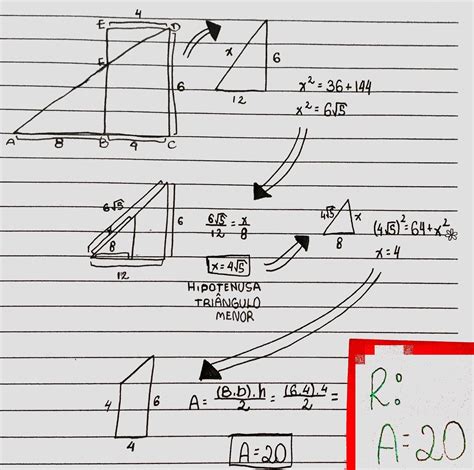 4
E D
x 6
E 6
12
x² = 36 + 144
x² = 6√5
A 8 B 4 C
6√5 x 6
8
12
6√5/12 = x/8
x = 4√5
HIPOTENUSA
TRIÂNGULO
MENOR
4√5 x
8
(4√5)² = 64 + x²
x = 4
4 6
4
A = (B.b).h/2 = (6.4).4/2 =
A = 20
R:
A = 20